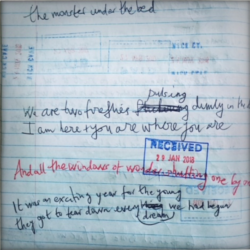 the monster under the bed
pulsing
We are two fireflies dimly in the
I am here & you are where you are
RECEIVED
29 JAN 2018
And all the windows of wo shutting one by one
It was an exciting year for the young
they got to tear down every we had begun
dream